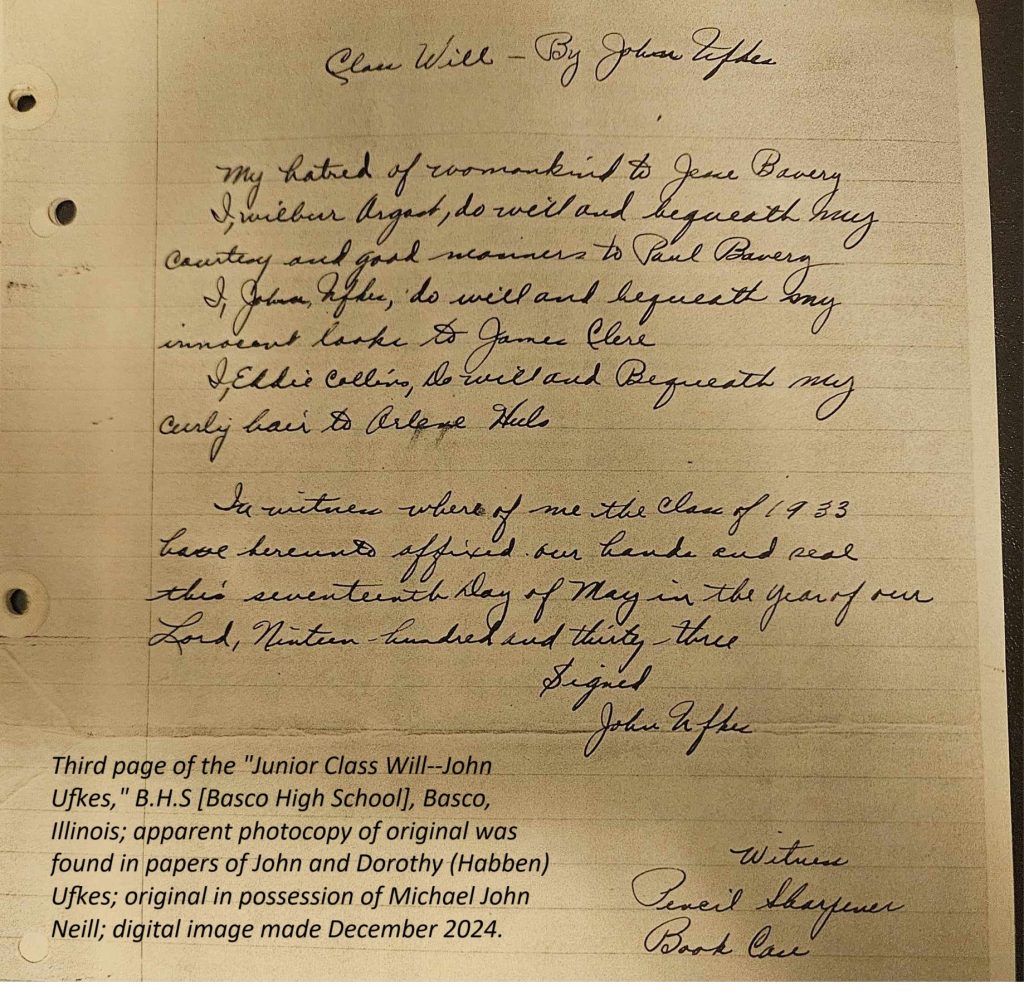 Class Will - By John Ufkes
My hatred of womankind to Jesse Bavery
I, Wilbur Argast, do will and bequeath my
courtesy and good manners to Paul Bavery
I, John, Ufkes, do will and bequeath my
innocent looks to James Clere
I, Eddie Collins, Do will and Bequeath my
curly hair to Arlene Huls
In witness where of me the Class of 1933
have hereunto affixed our hands and seal
this seventeenth Day of May in the Year of our
Lord, Nineteen-hundred and thirty-three
Signed
John Ufkes
Third page of the "Junior Class Will--John
Ufkes," B.H.S [Basco High School], Basco,
Illinois; apparent photocopy of original was
found in papers of John and Dorothy (Habben)
Ufkes; original in possession of Michael John
Neill; digital image made December 2024.
Witness
Pencil Sharpener
Book Case